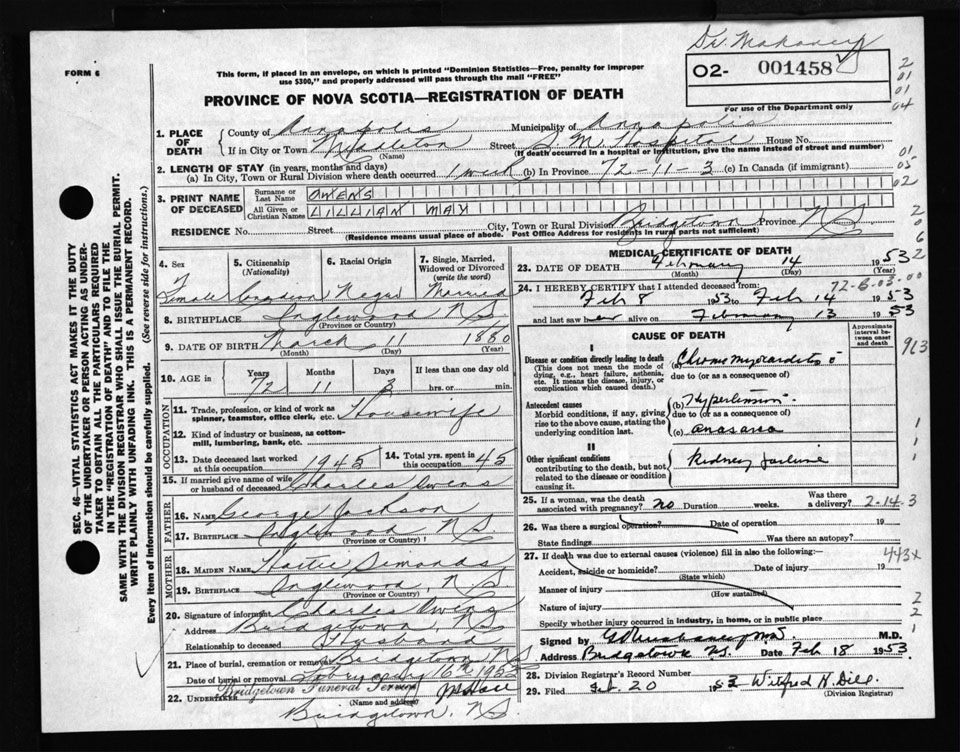 Dr. Mahaney
FORM 6
This form, if placed in an envelope, on which is printed "Dominion Statistics—Free, penalty for improper
use $300," and properly addressed will pass through the mail "FREE"
O2- 001458
For use of the Department only
PROVINCE OF NOVA SCOTIA—REGISTRATION OF DEATH
SEC. 46—VITAL STATISTICS ACT MAKES IT THE DUTY
OF THE UNDERTAKER OR PERSON ACTING AS UNDER-
TAKER TO OBTAIN ALL THE PARTICULARS REQUIRED
IN THE "REGISTRATION OF DEATH" AND TO FILE THE
SAME WITH THE DIVISION REGISTRAR WHO SHALL ISSUE THE BURIAL PERMIT.
WRITE PLAINLY WITH UNFADING INK. THIS IS A PERMANENT RECORD.
Every item of Information should be carefully supplied. (See reverse side for instructions.)
1. PLACE OF DEATH
County of Annapolis Municipality of Annapolis
If in City or Town Middleton Street S M. Hospital House No.
(Name) (If death occurred in a hospital or institution, give the name instead of street and number)
2. LENGTH OF STAY (in years, months and days)
(a) In City, Town or Rural Division where death occurred 1 week (b) In Province 72-11-3 (c) In Canada (if immigrant)
3. PRINT NAME OF DECEASED
Surname or Last Name OWENS
All Given or Christian Names LILLIAN MAY
RESIDENCE No. Street City, Town or Rural Division Bridgetown Province NS
(Residence means usual place of abode. Post Office Address for residents in rural parts not sufficient)
4. Sex Female
5. Citizenship (Nationality) Canadian
6. Racial Origin Negro
7. Single, Married, Widowed or Divorced (write the word) Married
8. BIRTHPLACE Inglewood NS
(Province or Country)
9. DATE OF BIRTH March 11 1880
(Month) (Day) (Year)
10. AGE in Years 72 Months 11 Days 3 If less than one day old hrs. or min.
OCCUPATION
11. Trade, profession, or kind of work as spinner, teamster, office clerk, etc. Housewife
12. Kind of industry or business, as cotton-mill, lumbering, bank, etc.
13. Date deceased last worked at this occupation 1945
14. Total yrs. spent in this occupation 45
15. If married give name of wife or husband of deceased Charles Owens
FATHER
16. NAME George Jackson
17. BIRTHPLACE Inglewood NS.
(Province or Country)
MOTHER
18. MAIDEN NAME Hattie Simonds
19. BIRTHPLACE Inglewood, N S
(Province or Country)
20. Signature of informant Charles Owens
Address Bridgetown, NS
Relationship to deceased Husband
21. Place of burial, cremation or removal Bridgetown NS
Date of burial or removal 16th 195
22. UNDERTAKER Bridgetown Funeral Service
(Name and address)
Bridgetown, NS.
MEDICAL CERTIFICATE OF DEATH
23. DATE OF DEATH February 14 1953
(Month) (Day)
72-6-03-00
24. I HEREBY CERTIFY that I attended deceased from:
Feb 8 1953 to Feb 14 1953
and last saw her alive on February 13 1953
CAUSE OF DEATH
Approximate interval between onset and death
I
Disease or condition directly leading to death
(This does not mean the mode of dying, e.g., heart failure, asthenia, etc. It means the disease, injury, or complication which caused death.)
(a) Chronic Myocarditis
due to (or as a consequence of)
Antecedent causes
Morbid conditions, if any, giving rise to the above cause, stating the underlying condition last.
(b) Hypertension
due to (or as a consequence of)
(c) anasarca
II
Other significant conditions
contributing to the death, but not related to the disease or condition causing it.
Kidney failure
25. If a woman, was the death associated with pregnancy? no Duration weeks. Was there a delivery? 2-14-3
26. Was there a surgical operation? Date of operation 19
State findings Was there an autopsy?
27. If death was due to external causes (violence) fill in also the following:— 443x
Accident, suicide or homicide? Date of injury 19
(State which)
Manner of injury
(How sustained)
Nature of injury
Specify whether injury occurred in industry, in home, or in public place
Signed by M.D.
Address Bridgetown N.S. Date Feb 18 1953
28. Division Registrar's Record Number
29. Filed Feb. 20 1953 Wilfred H. Dill
(Division Registrar)